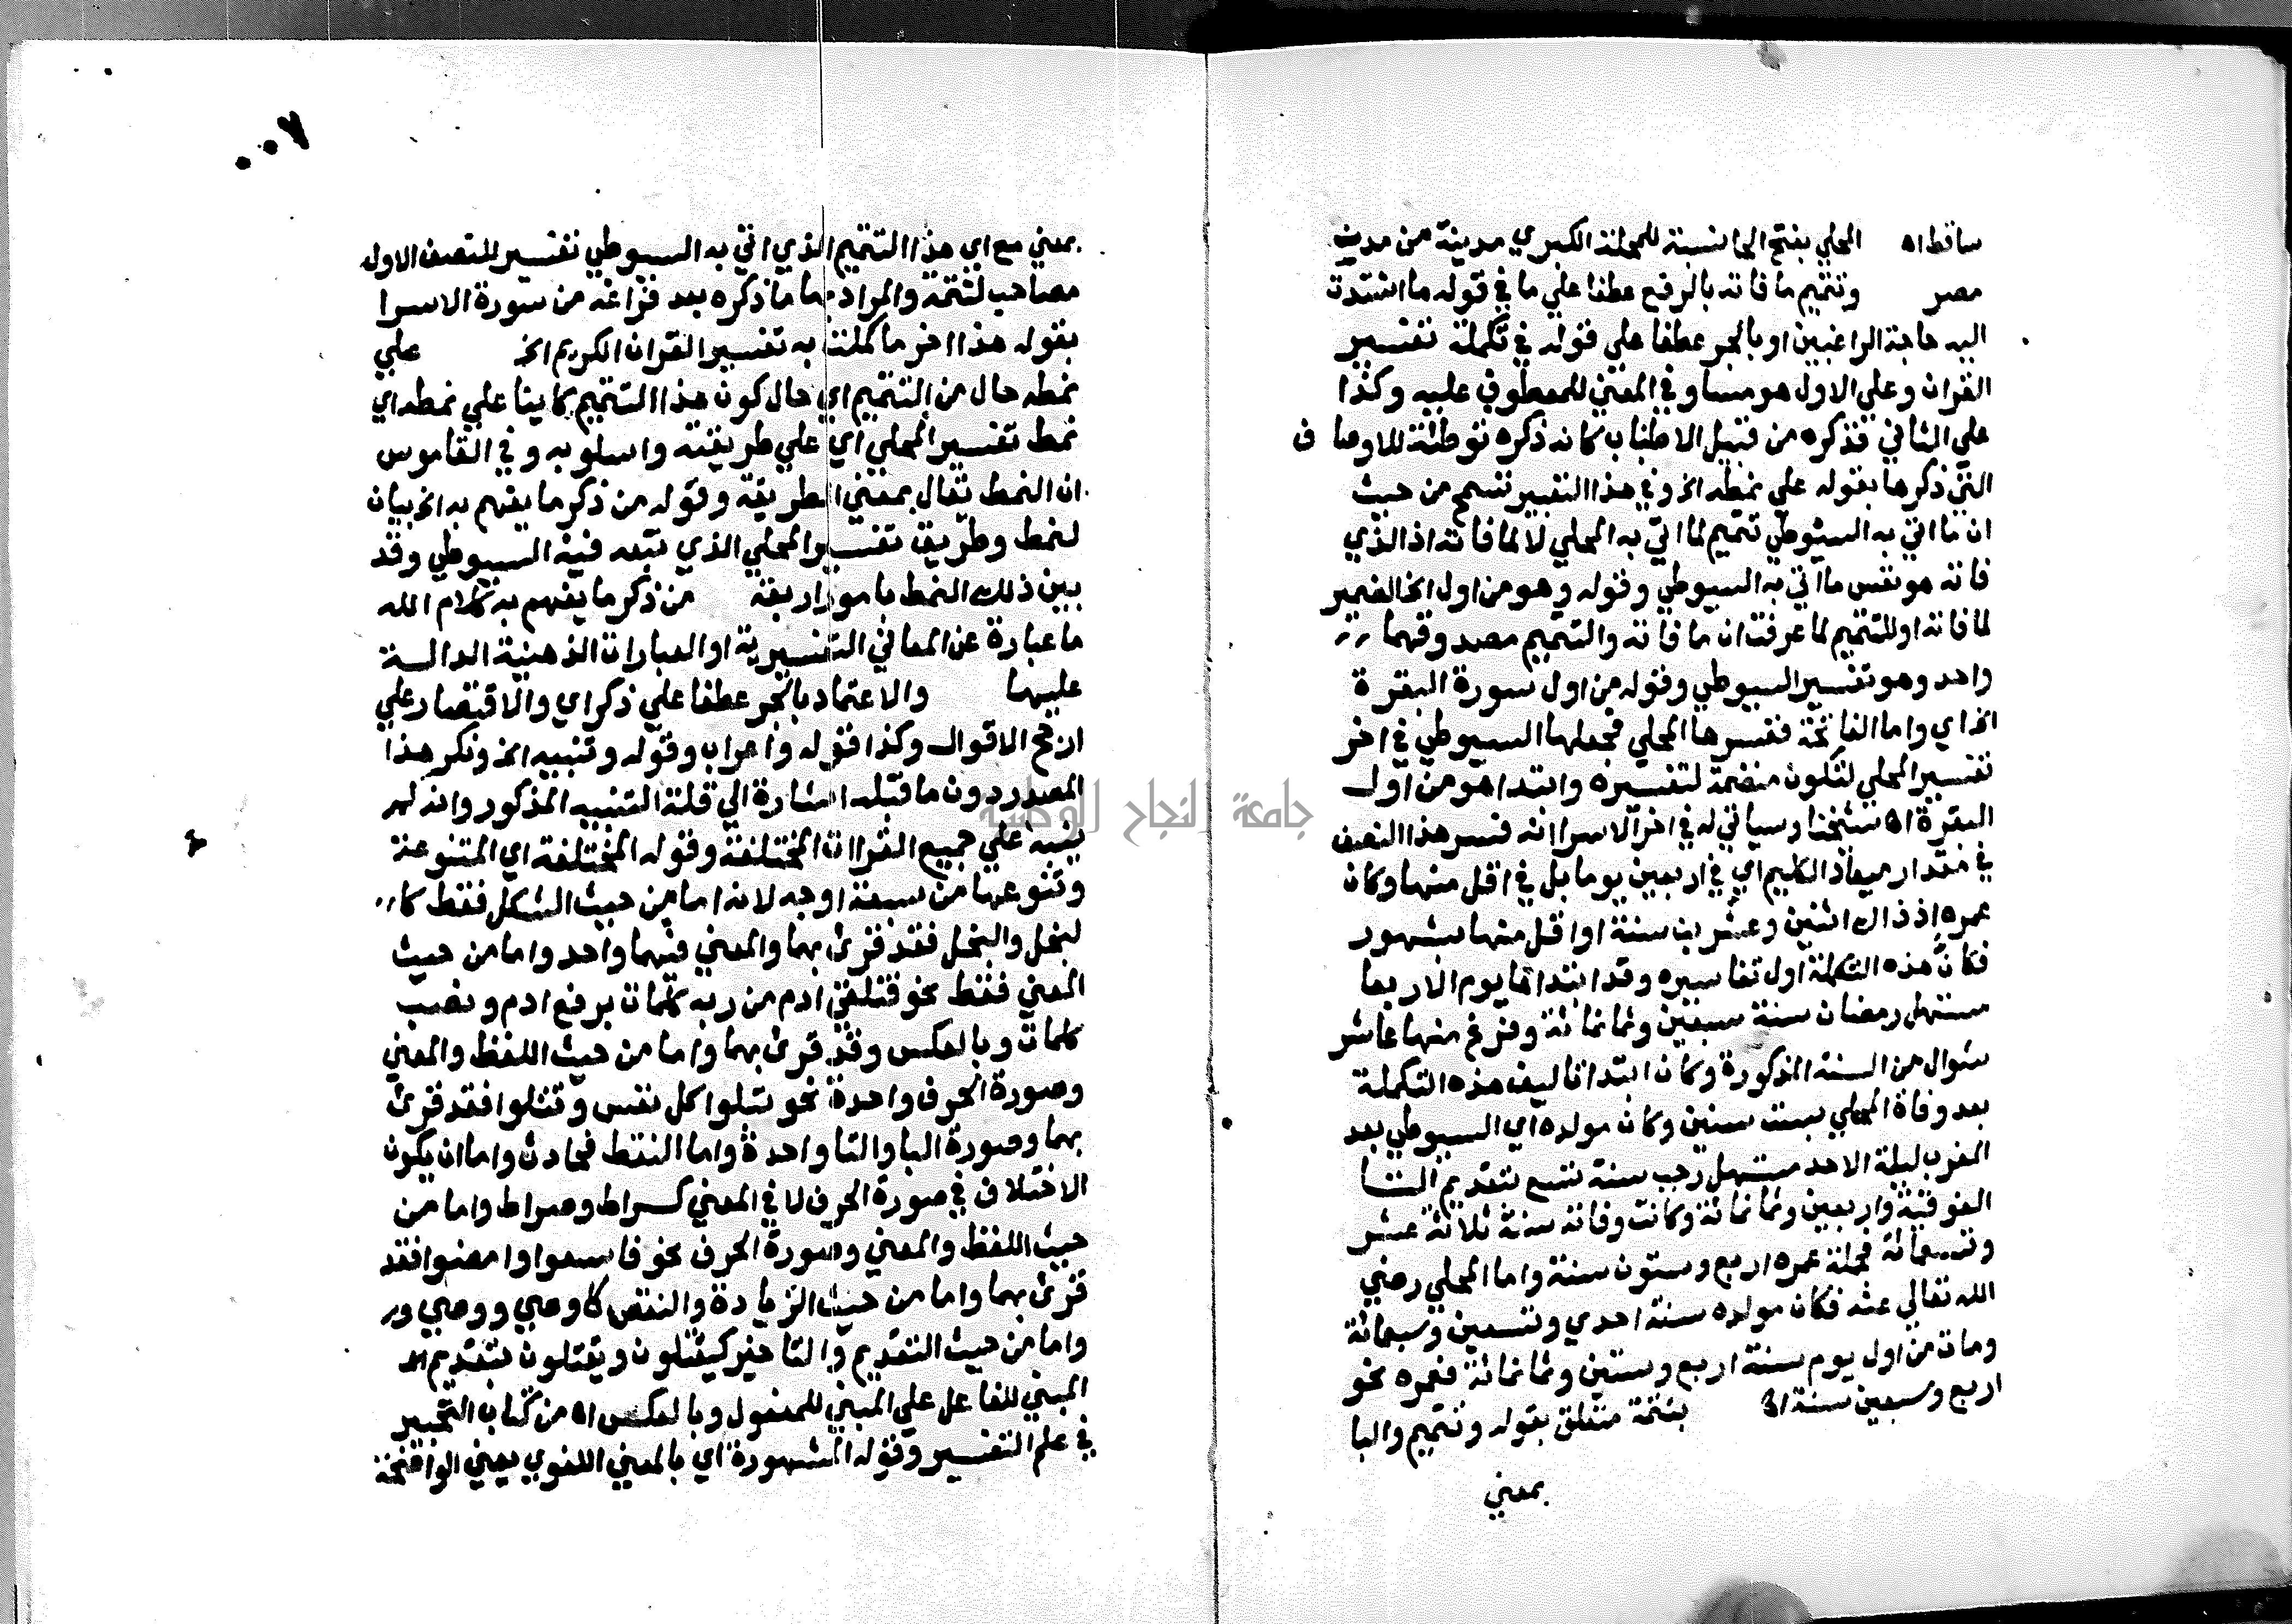 ساقط اه المحلي بفتح الحا نسبة للمحلة الكبري مدينة من مدين
مصر وتتميم ما فاته بالرفع عطفا علي ما في قوله ما اشتدت
اليه حاجة الراغبين او بالجر عطفا علي قوله في تكملة تفسير
القران وعلي الاول هو مساو في المعني للمعطوف عليه وكذا
علي الثاني فذكره من قبيل الاطناب كانه ذكره توطئة للاوصاف
التي ذكرها بقوله علي نمطه الخ وفي هذا التعبير تسمح من حيث
ان ما اتي به السيوطي تتميم لما اتي به المحلي لا لما فاته اذ الذي
فاته هو نفس ما اتي به السيوطي وقوله وهو من اول الخ الضمير
لما فاته او للتتميم لما عرفت ان ما فاته والتتميم مصدوقهما
واحد وهو تفسير السيوطي وقوله من اول سورة البقرة
الخ اي واما الفاتحة ففسرها المحلي فجعلها السيوطي في اخر
تفسير المحلي لتكون منضمة لتفسيره وابتدا هو من اول
البقرة اه شيخنا وسياتي له في اخر الاسرا انه فسر هذا النصف
في مقدار ميعاد الكليم اي في اربعين يوما بل في اقل منها وكان
عمره اذ ذاك اثنين وعشرين سنة او اقل منها بشهور
فكان هذه التكملة اول تفاسيره وقد ابتداها يوم الاربعا
مستهل رمضان سنة سبعين وثمانمائة وفرغ منها عاشر
شوال من السنة المذكورة وكان ابتدا تاليف هذه التكملة
بعد وفاة المحلي بست سنين وكان مولده اي السيوطي بعد
المغرب ليلة الاحد مستهل رجب سنة تسع بتقديم التا
الفوقية واربعين وثمانمائة وكانت وفاته سنة ثلاثة عشر
وتسعمائة فجملة عمره اربع وستون سنة واما المحلي رضي
الله تعالي عنه فكان مولده سنة احدي وتسعين وسبعمائة
ومات من اول يوم سنة اربع وستين وثمانمائة فعمره نحو
اربع وسبعين سنة اه بتتمة متعلق بقوله وتتميم والبا
بمعني
٠٠٧
بمعني مع اي هذا التتميم الذي اتي به السيوطي تفسير للنصف الاول
مصاحب لتتمة والمراد بها ما ذكره بعد فراغه من سورة الاسرا
بقوله هذا اخر ما كملت به تفسير القران الكريم الخ علي
نمطه حال من التتميم اي حال كون هذا التتميم كاينا علي نمطه اي
نمط تفسير المحلي اي علي طريقته واسلوبه وفي القاموس
ان النمط يقال بمعني الطريقة وقوله من ذكر ما يفهم به الخ بيان
لنمط وطريق تفسير المحلي الذي تبعه فيه السيوطي وقد
بين ذلك النمط بامور اربعة من ذكر ما يفهم به كلام الله
ما عبارة عن المعاني التفسيرية او العبارات الذهنية الدالة
عليها والاعتماد بالجر عطفا علي ذكر اي والاقتصار علي
ارجح الاقوال وكذا قوله واعراب وقوله وتنبيه الخ ونكر هذا
المصدر دون ما قبله اشارة الي قلة التنبيه المذكور وانه لم
ينبه علي جميع القراات المختلفة وقوله المختلفة اي المتنوعة
وتنوعها من سبعة اوجه لانه اما من حيث الشكل فقط كا
لبخل والبخل فقد قرئ بهما والمعني فيهما واحد واما من حيث
المعني فقط نحو فتلقي ادم من ربه كلمات برفع ادم ونصب
كلمات وبالعكس وقد قرئ بهما واما من حيث اللفظ والمعني
وصورة الحرف واحدة نحو تبلوا كل نفس وتتلوا فقد قرئ
بهما وصورة البا والتا واحدة واما النقط فحادث واما ان يكون
الاختلاف في صورة الحرف لا في المعني كسراط وصراط واما من
حيث اللفظ والمعني وصورة الحرف نحو فاسعوا وامضوا فقد
قرئ بهما واما من حيث الزيادة والنقص كاوصي ووصي
واما من حيث التقديم والتاخير كيقتلون ويقتلون بتقديم
المبني للفاعل علي المبني للمفعول وبالعكس اه من كتاب التحبير
في علم التفسير وقوله المشهورة اي بالمعني اللغوي يعني الواضحة
جامعة النجاح الوطنية